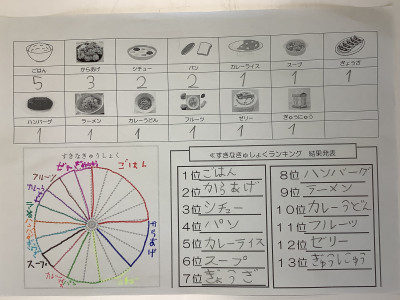 ごはん からあげ シチュー パン カレーライス スープ ぎょうざ
5 3 2 2 1 1 1
ハンバーグ ラーメン カレーうどん フルーツ ゼリー ぎゅうにゅう
1 1 1 1 1 1
すきなきゅうしょく
ごはん
からあげ
スープ
フルーツ
≪すきなきゅしょくランキング 結果発表
1位 ごはん
2位 からあげ
3位 シチュー
4位 パン
5位 カレーライス
6位 スープ
7位 ぎょうざ
8位 ハンバーグ
9位 ラーメン
10位 カレーうどん
11位 フルーツ
12位 ゼリー
13位 ぎゅうにゅう